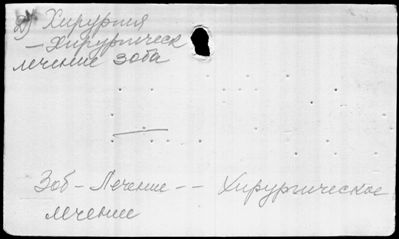 Хирургия
– Хирургическ
лечение зоба
Зоб – Лечение – – Хирургическое
лечение